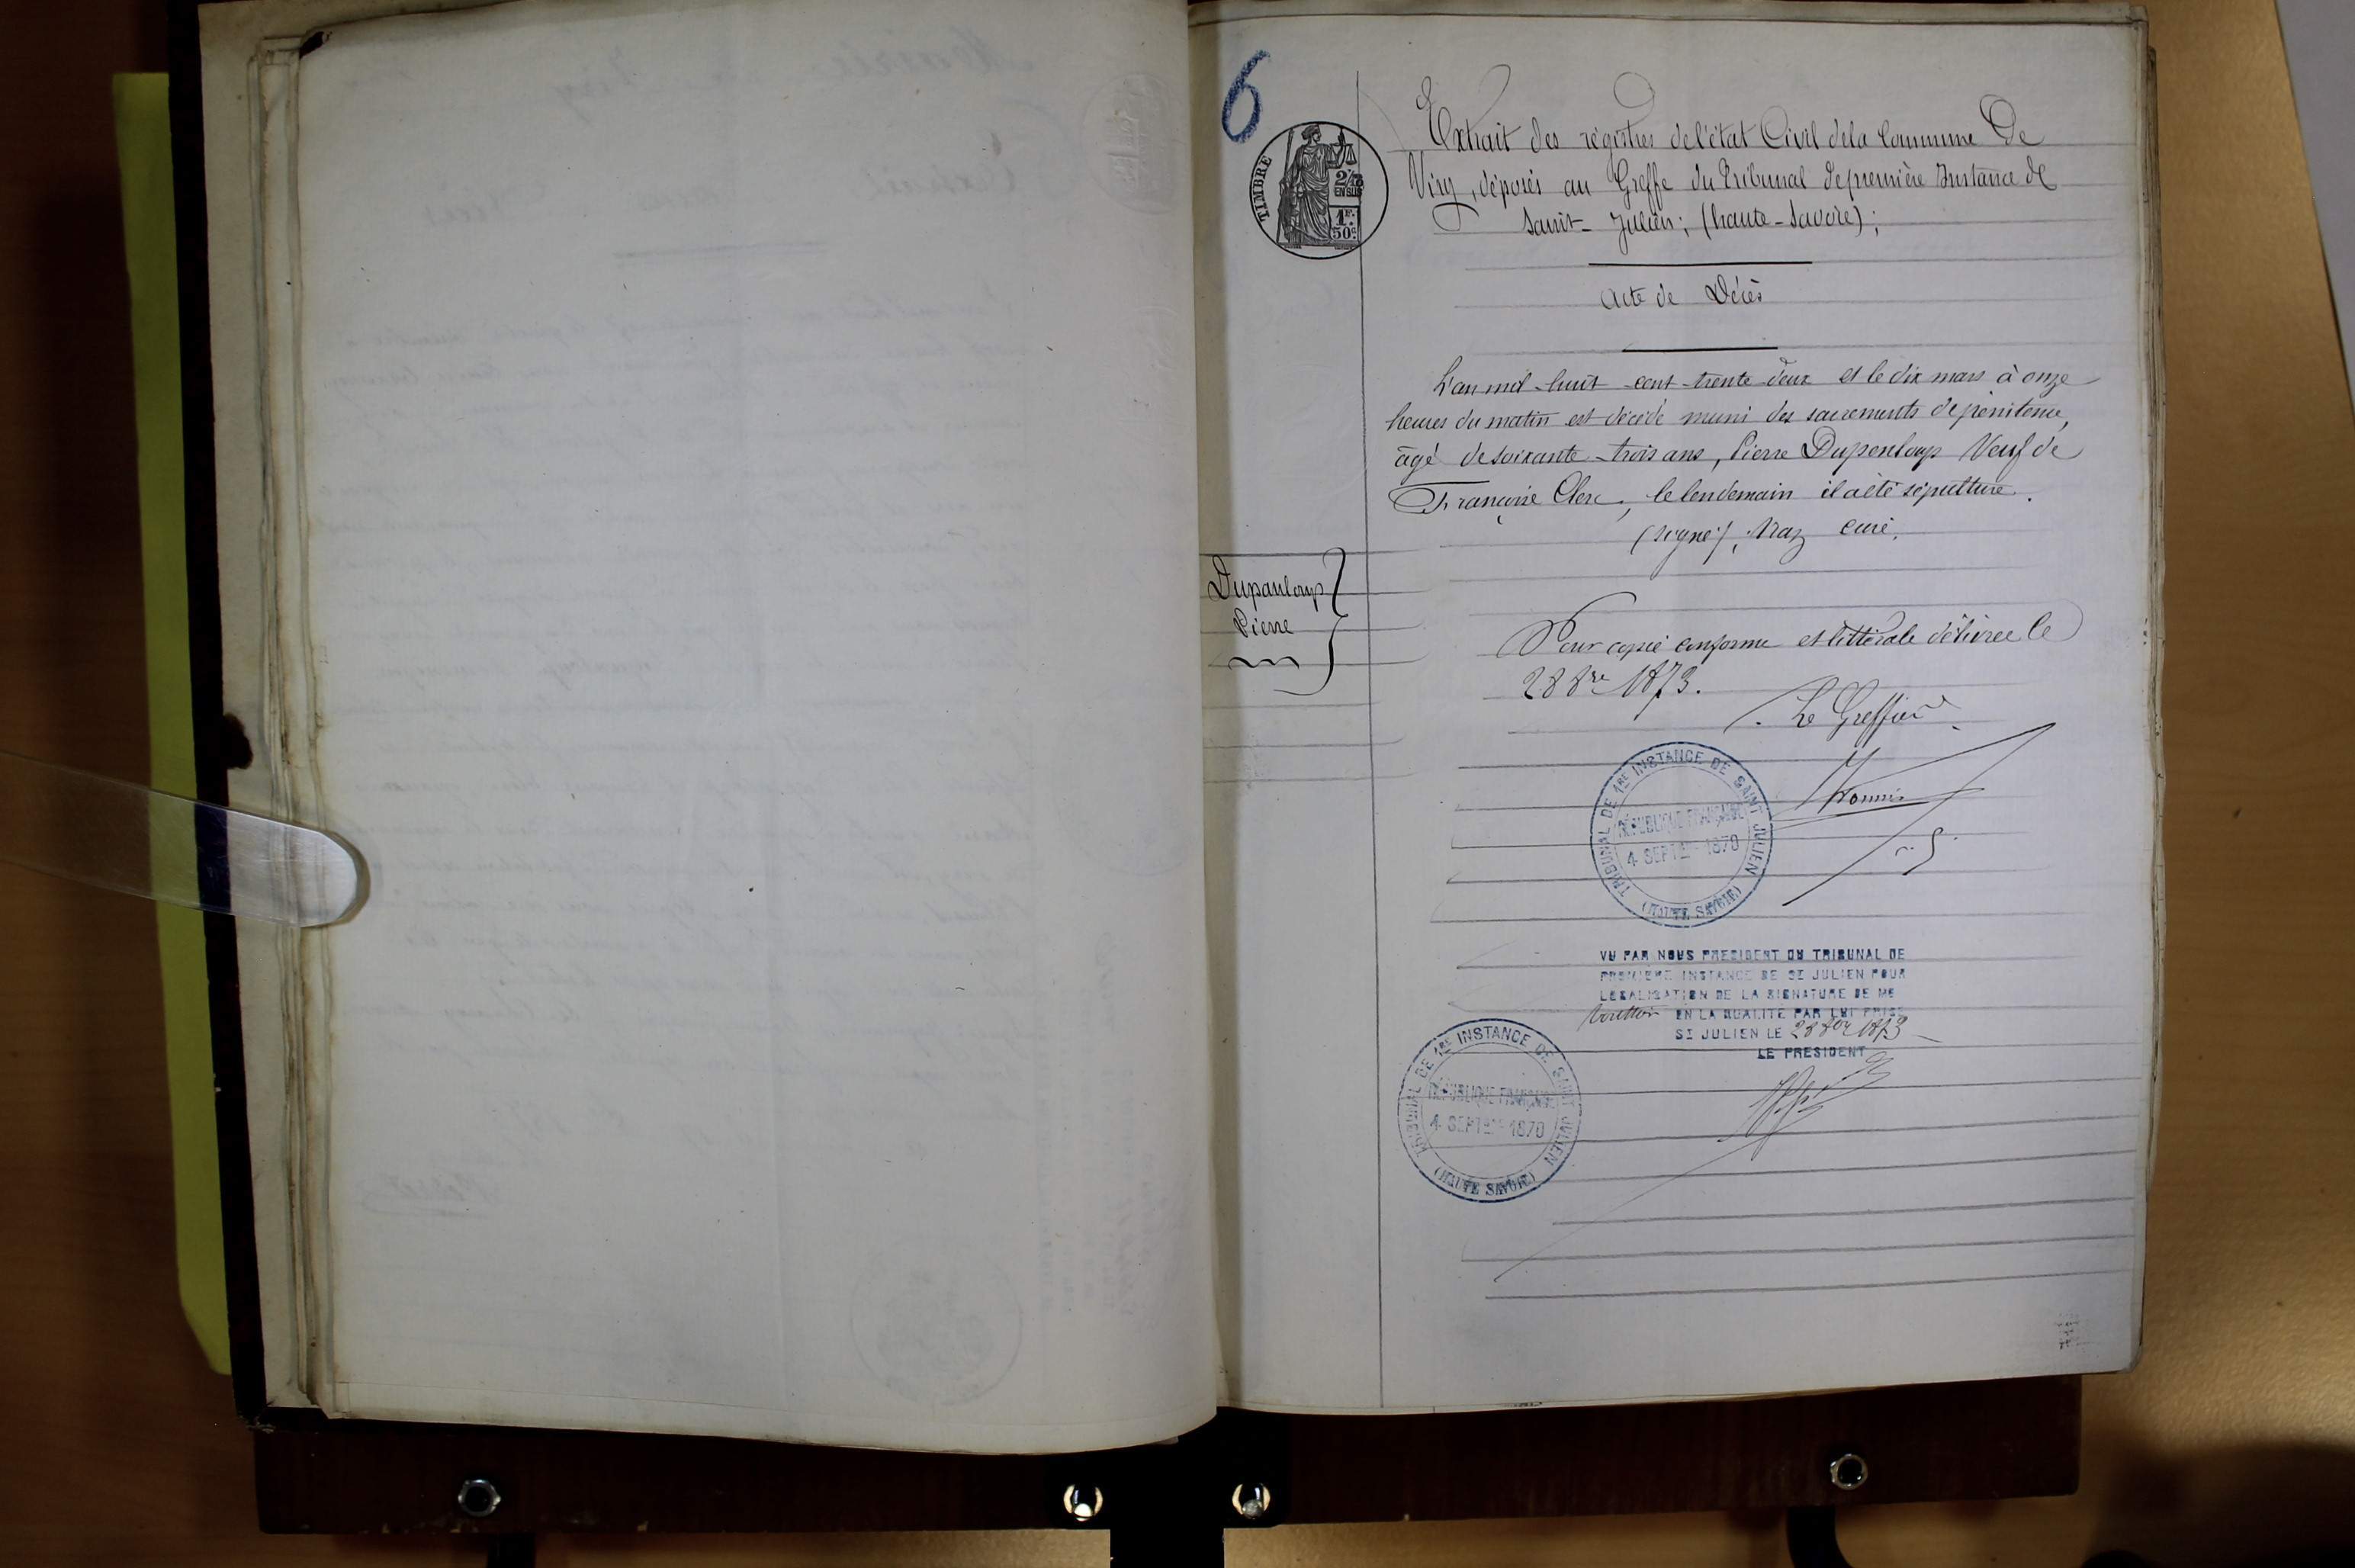 6
TIMBRE
2/10
EN SUS
1F.
50c
Extrait des régistres de l'état Civil de la Commune De
Viry, déposés au Greffe du Tribunal de première Instance de
Saint-Julien; (haute-Savoie);
Acte de Décès
L'an mil-huit-cent-trente-deux et le dix mars à onze
heures du matin est décédé muni des sacrements de pénitence,
âgé de soixante-trois ans, Pierre Dupenloup Veuf de
Françoise Clerc, le lendemain il a été sépulturé.
(signé), curé.
Dupanloup
Pierre
Pour copie conforme et littérale délivrée le
28 8re 1873.
Le Greffier
TRIBUNAL DE 1RE INSTANCE DE SAINT JULIEN
RÉPUBLIQUE FRANÇAISE
4 SEPTBRE 1870
(HAUTE SAVOIE)
VU PAR NOUS PRESIDENT DU TRIBUNAL DE
PREMIERE INSTANCE DE ST JULIEN POUR
LEGALISATION DE LA SIGNATURE DE ME
EN LA QUALITE PAR LUI PRISE
ST JULIEN LE 28 8bre 1873
LE PRESIDENT
TRIBUNAL DE 1RE INSTANCE DE SAINT JULIEN
RÉPUBLIQUE FRANÇAISE
4 SEPTBRE 1870
(HAUTE SAVOIE)